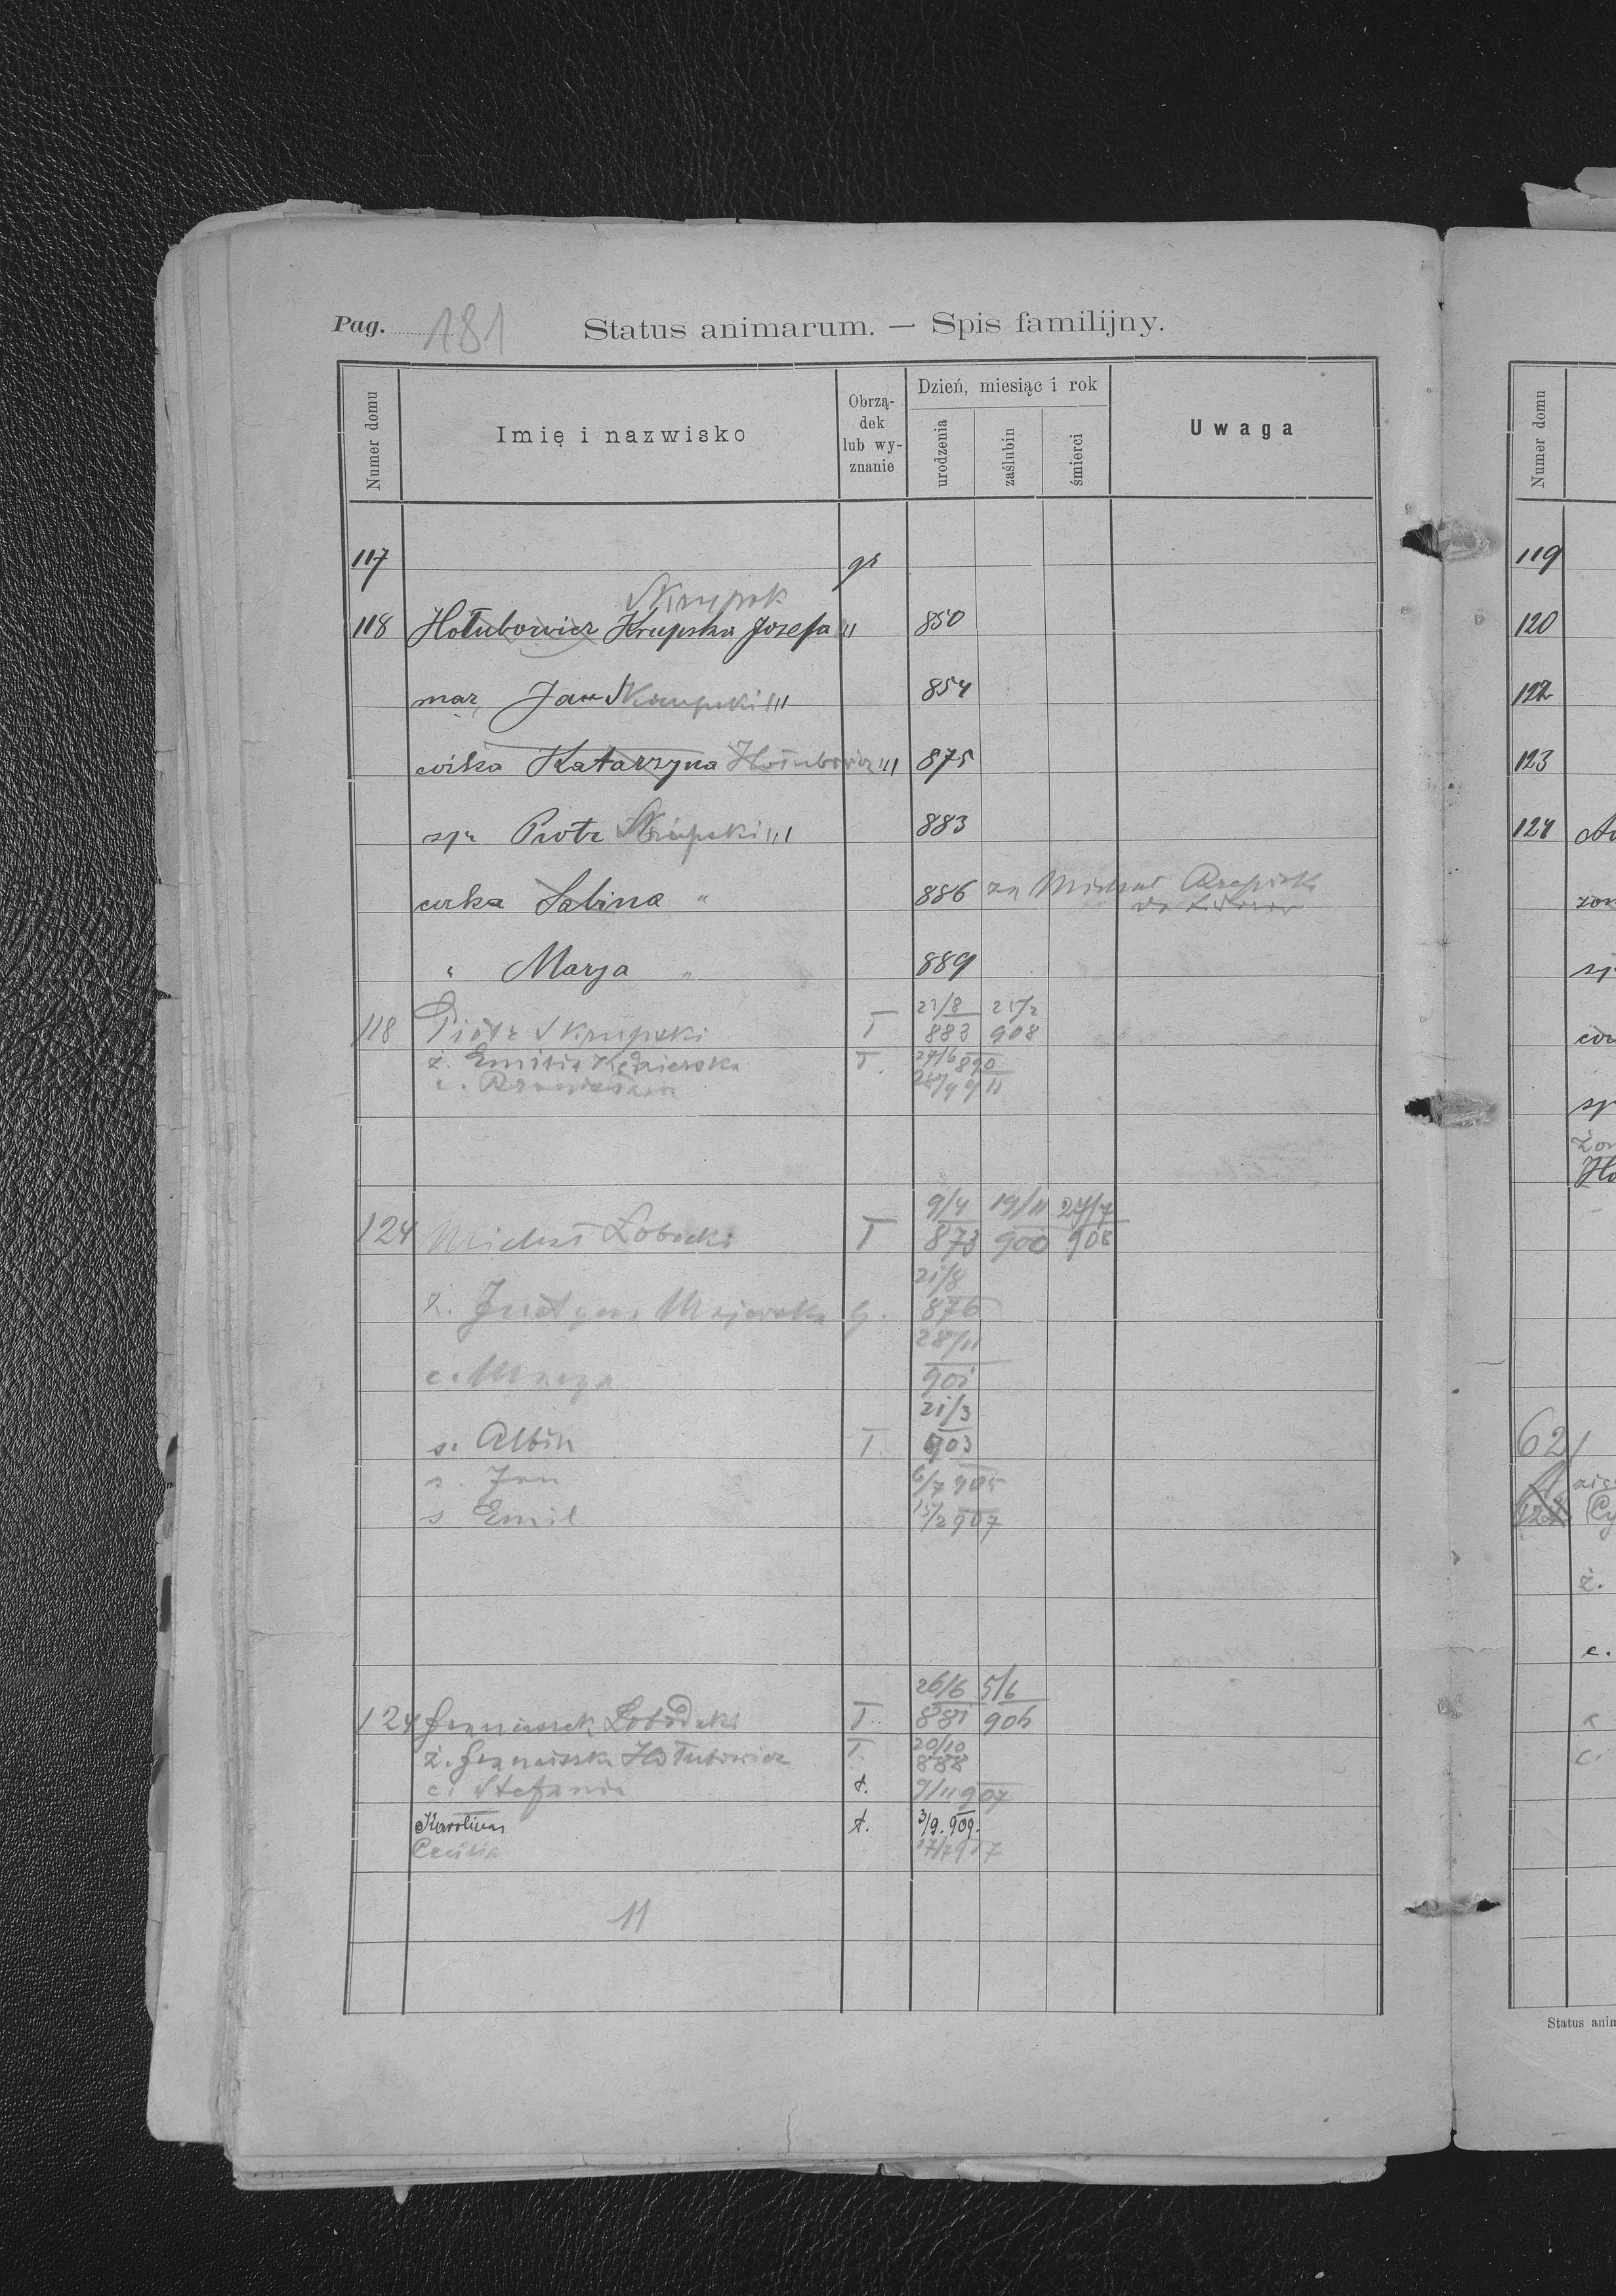 Pag. 181 Status animarum. — Spis familijny.
Numer domu
Imię i nazwisko
Obrzą-
dek
lub wy-
znanie
Dzień, miesiąc i rok
urodzenia
zaślubin
śmierci
Uwaga
117 gr
118 Hołubowicz Krupska Józefa " 850
mąż Jan Skrupski 854
córka Katarzyna Hołubowicz 875
syn Piotr Skrupski 883
córka Sabina " 886 za Michał
" Marya " 889
118 Piotr Skrupski T 883 908
ż. Emilia Kędzierska T. 27/6 890
c. Bronisława 28/9 911
124 Michał T 9/4 873 19/11 900 27/7 908
ż. Justyna Majewska g. 21/8 876
c. Marya 28/11 901
s. Albin T. 21/3 903
s. Jan 6/7 905
s Emil 15/2 907
124 Franciszek T. 26/6 881 5/6 906
ż. Franciszka Hołubowicz T. 20/10 888
c. Stefania ł. 9/11 907
Karolina ł. 3/9. 909.
Cecilia
11
Numer domu
119
120
122
123
124
żon
sy
cór
sy
Żon
Ho
621
ż.
c.
Status anim